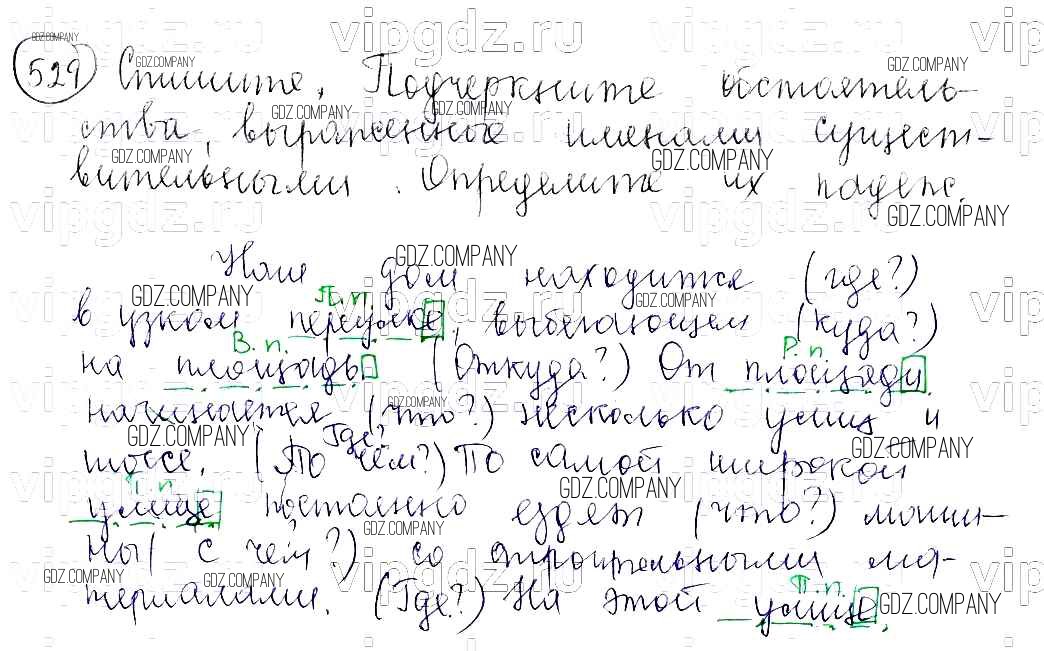 529 Спишите. Подчеркните обстоятель-
ства, выраженные именами сущест-
вительными. Определите их падеж.
Наш дом находится (где?)
П.п.
в узком переулке, выбегающем (куда?)
В.п. Р.п.
на площадь (Откуда?) От площади
начинается (что?) несколько улиц и
Где?
шоссе. (По чём?) По самой широкой
П.п.
улице постоянно ездят (что?) маши-
ны (с чем?) со строительными ма-
П.п.
териалами. (Где?) На этой улице